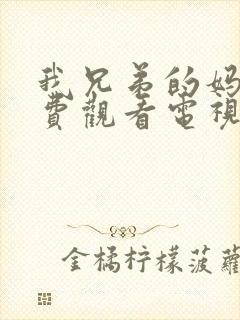 我兄弟的妈
費觀看電視
金橘柠檬菠蘿